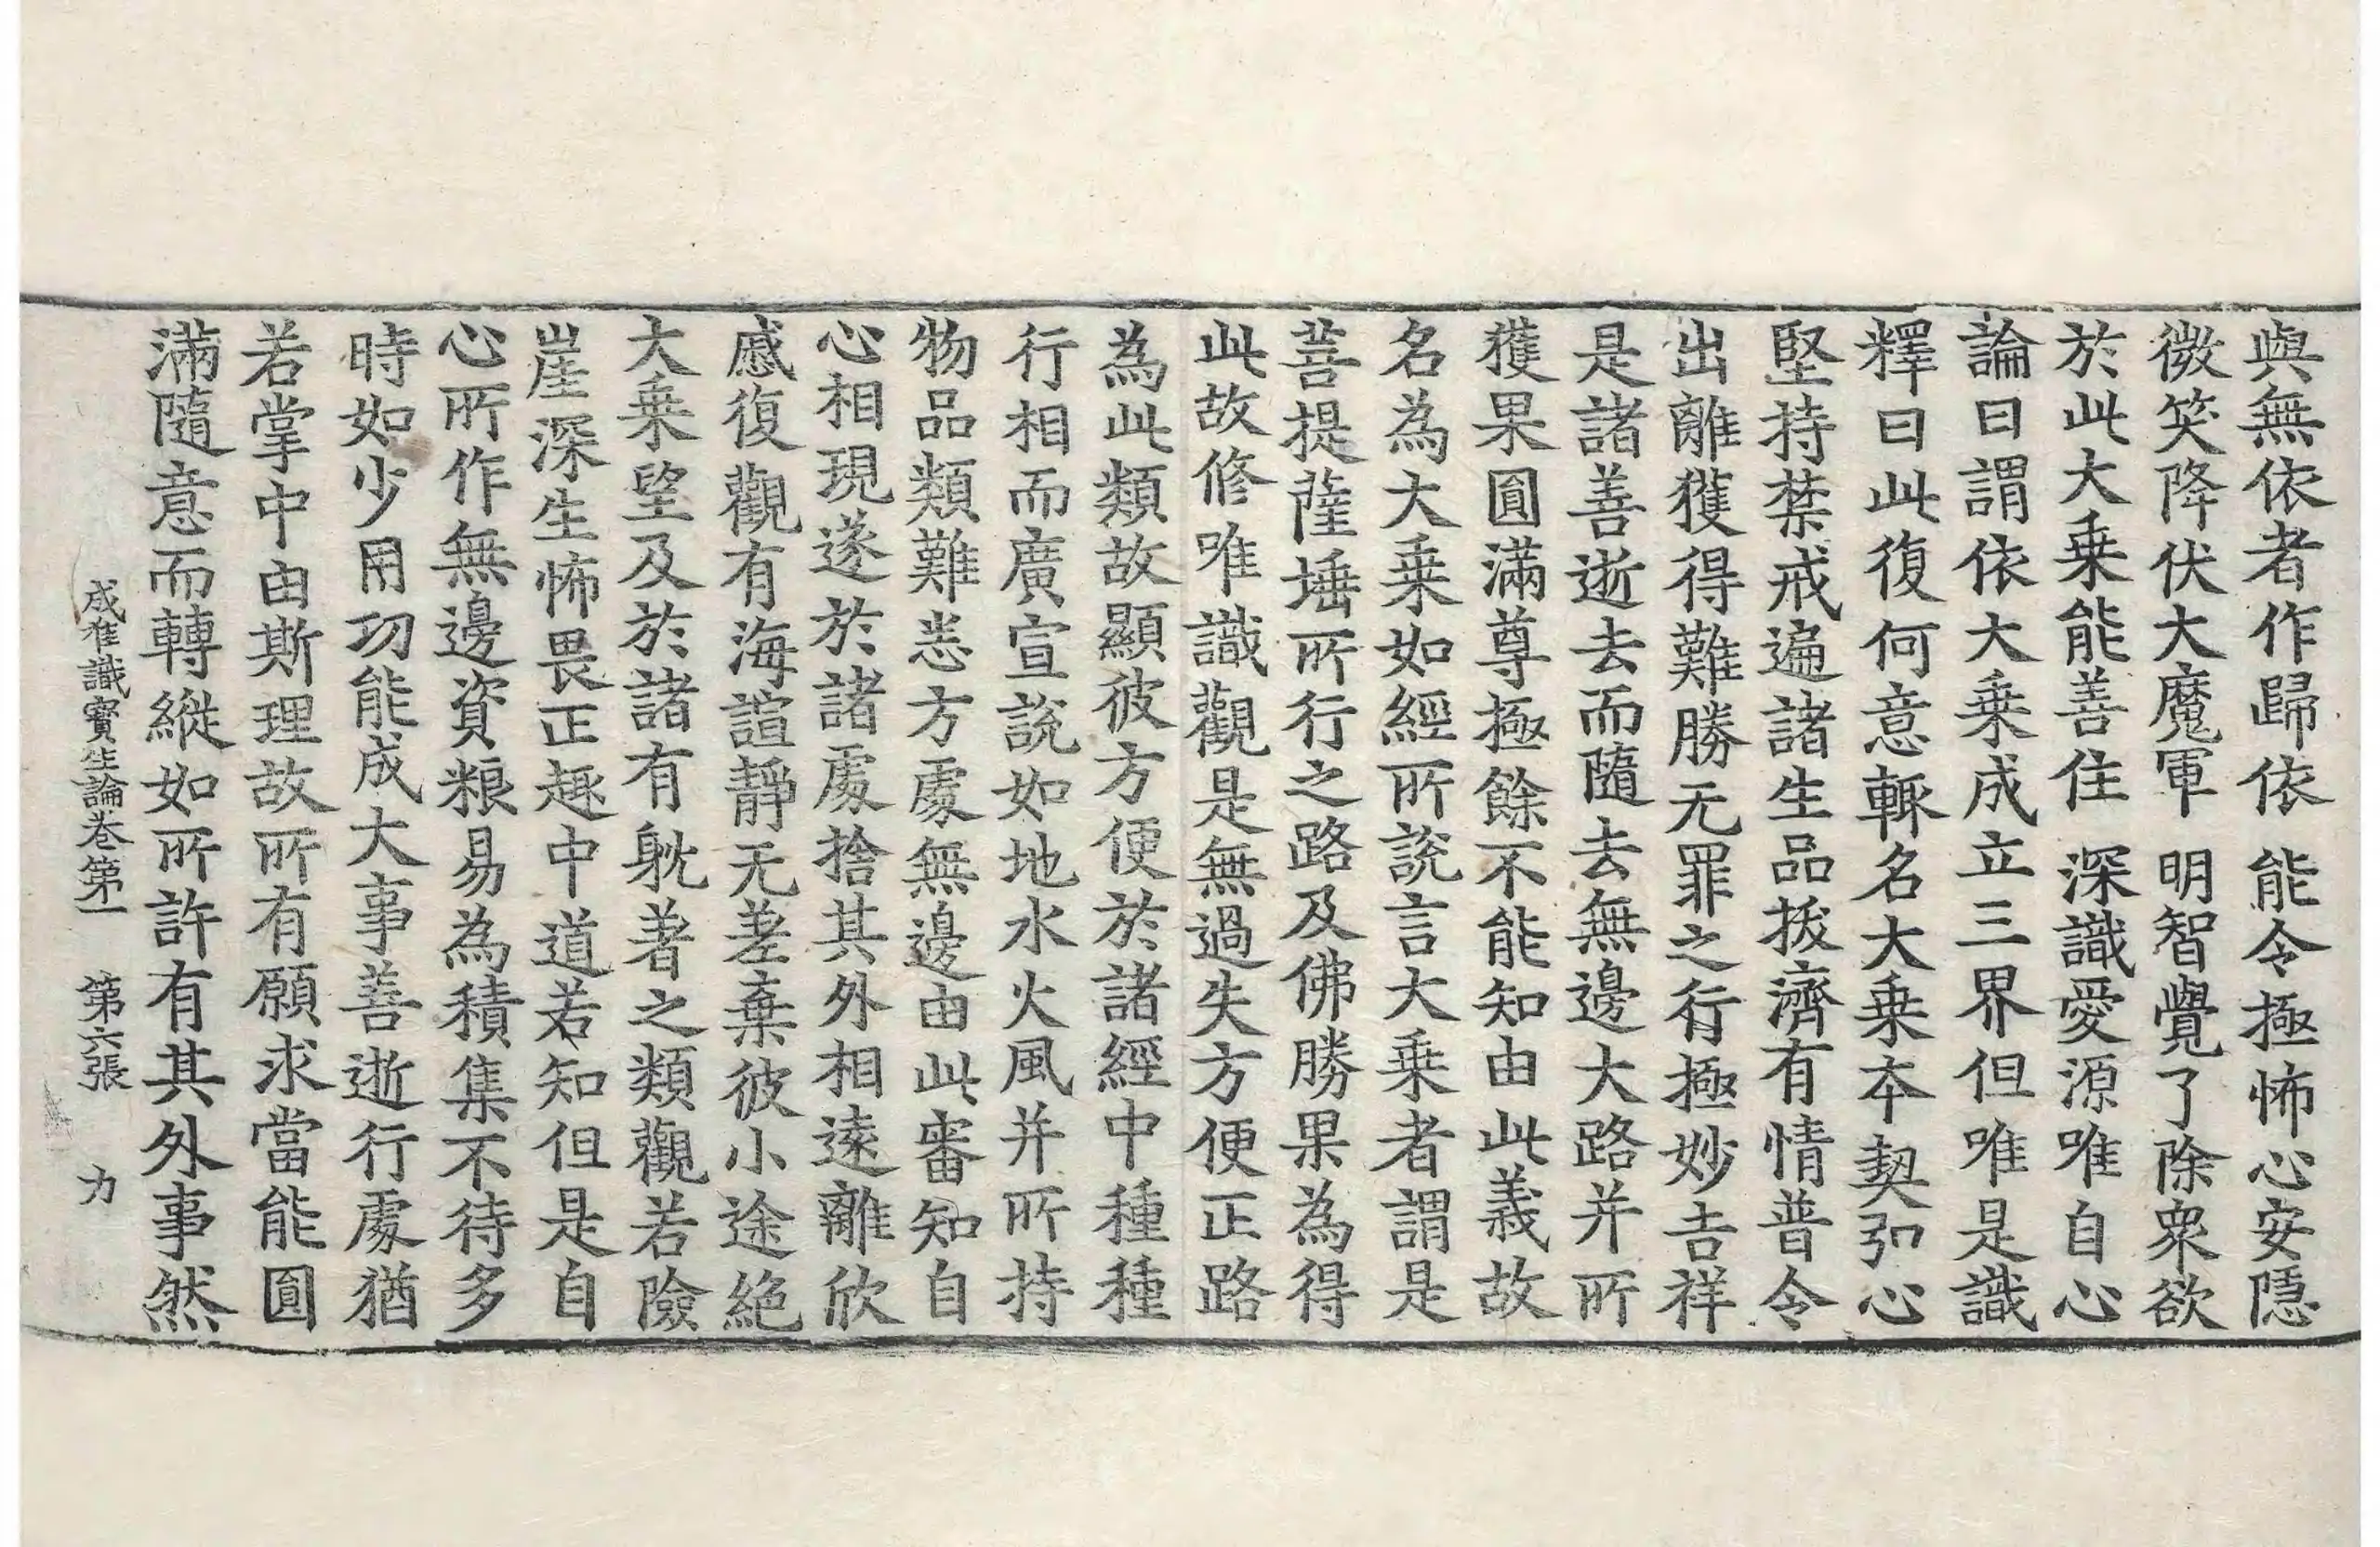 與無依者作歸依　能令極怖心安隱
微笑降伏大魔軍　明智覺了除衆欲
於此大乗能善住　深識愛源唯自心
論曰謂依大乗成立三界但唯是識
釋曰此復何意輙名大乗本契弘心
堅持禁戒遍諸生品拔濟有情普令
出離獲得難勝无罪之行極妙吉祥
是諸善逝去而隨去無邊大路并所
獲果圓滿尊極餘不能知由此義故
名為大乗如經所說言大乗者謂是
菩提薩埵所行之路及佛勝果為得
此故修唯識觀是無過失方便正路
為此類故顯彼方便於諸經中種種
行相而廣宣說如地水火風并所持
物品類難悉方處無邊由此審知自
心相現遂於諸處捨其外相遠離欣
慼復觀有海諠靜无差棄彼小途絶
大乗望及於諸有躭著之類觀若險
崖深生怖畏正趣中道若知但是自
心所作無邊資粮易為積集不待多
時如少用功能成大事善逝行處猶
若掌中由斯理故所有願求當能圓
滿隨意而轉縱如所許有其外事然
成唯識寳生論卷第一　第六張　力